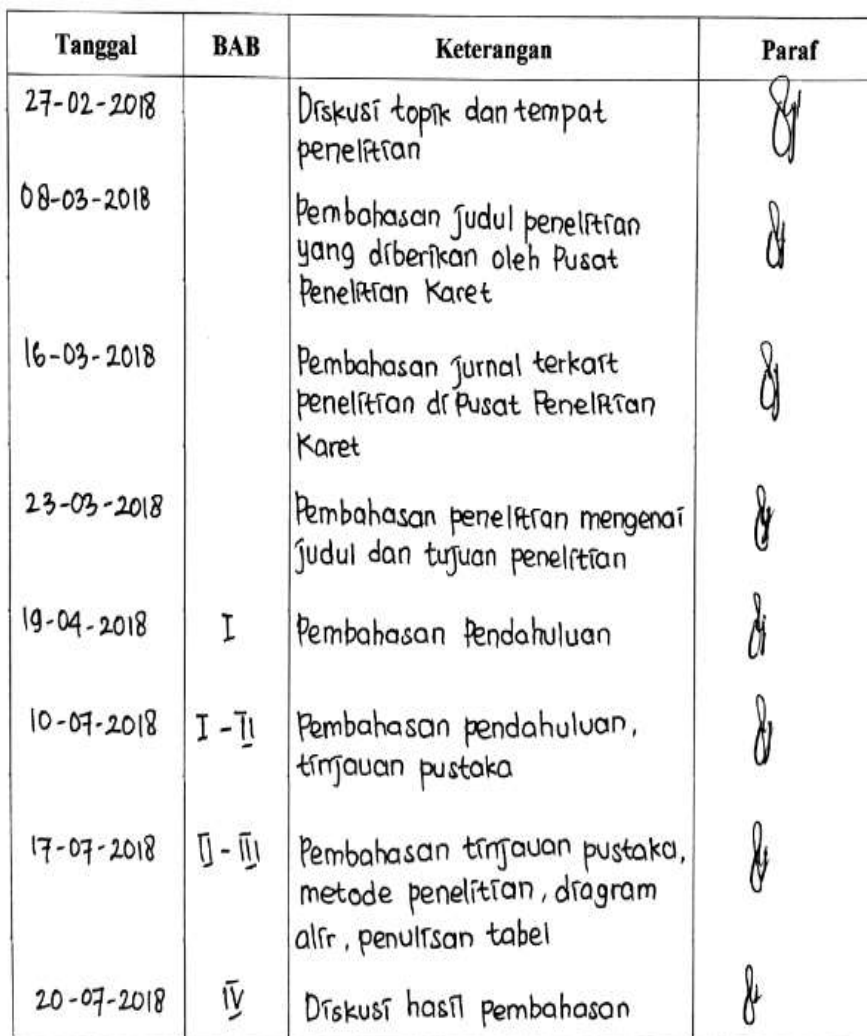 Tanggal BAB Keterangan Paraf
27-02-2018 Diskusi topik dan tempat
penelitian
08-03-2018 Pembahasan judul penelitian
yang diberikan oleh Pusat
Penelitian Karet
16-03-2018 Pembahasan jurnal terkait
penelitian di Pusat Penelitian
Karet
23-03-2018 Pembahasan penelitian mengenai
judul dan tujuan penelitian
19-04-2018 I Pembahasan Pendahuluan
10-07-2018 I - II Pembahasan pendahuluan,
tinjauan pustaka
17-07-2018 II - III Pembahasan tinjauan pustaka,
metode penelitian, diagram
alir, penulisan tabel
20-07-2018 IV Diskusi hasil pembahasan